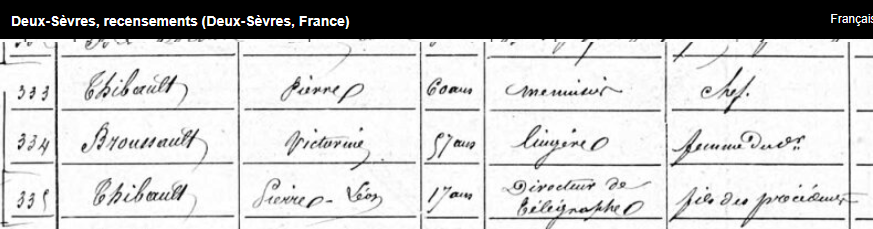 Deux-Sèvres, recensements (Deux-Sèvres, France)
Français
333 Thibault Pierre 60 ans menuisier chef
334 Broussault Victorine 57 ans lingère femme du dr
335 Thibault Pierre-Léon 17 ans Directeur de
télégraphe fils des précédents